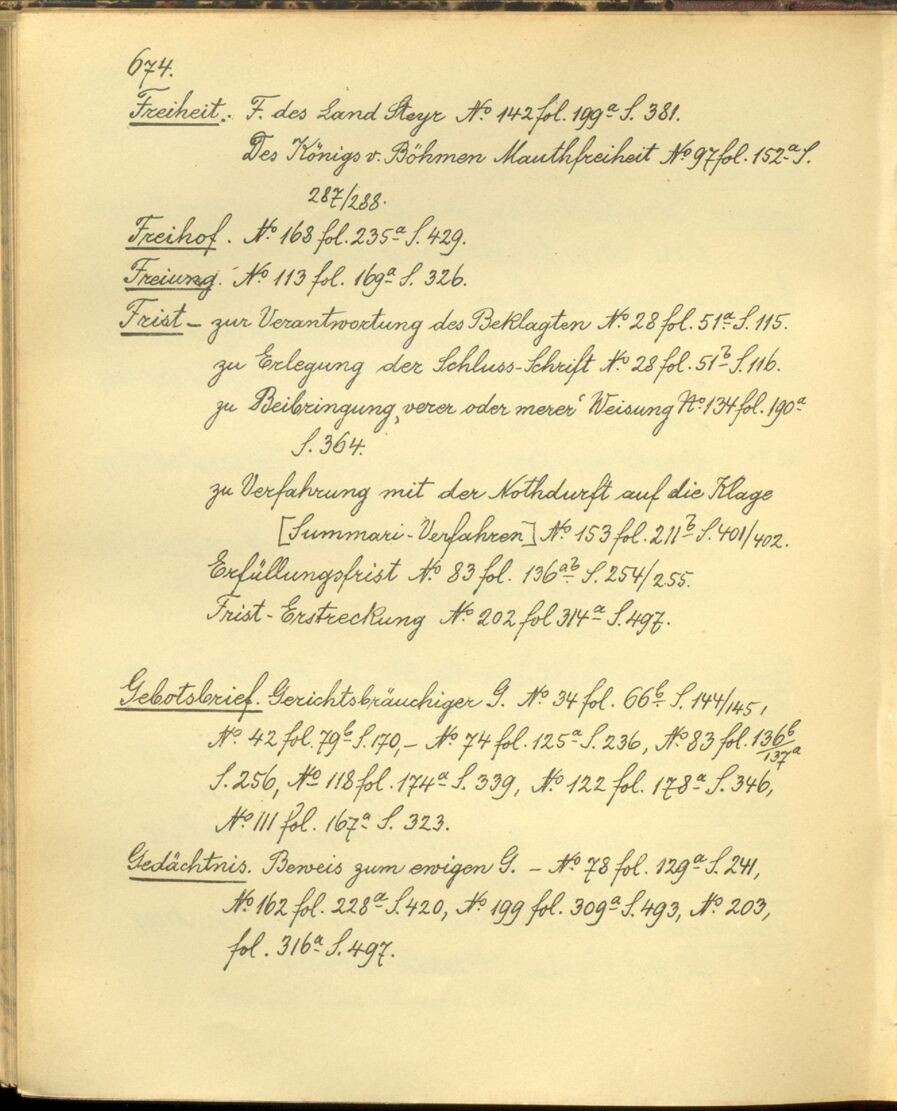 674.
Freiheit. F. des Land Steyr No 142 fol. 199a S. 381.
Des Königs v. Böhmen Mauthfreiheit No 97 fol. 152a S.
287/288.
Freihof. No 168 fol. 235a S. 429.
Freiung. No 113 fol. 169a S. 326.
Frist – zur Verantwortung des Beklagten No 28 fol. 51a S. 115.
zu Erlegung der Schluss-Schrift No 28 fol. 51b S. 116.
zu Beibringung ‚verer oder merer‘ Weisung No 134 fol. 190a
S. 364.
zu Verfahrung mit der Nothdurft auf die Klage
[Summari-Verfahren] No 153 fol. 211b S. 401/402.
Erfüllungsfrist No 83 fol. 136ab S. 254/255.
Frist-Erstreckung No 202 fol 314a S. 497.
Gebotsbrief. Gerichtsbräuchiger G. No 34 fol. 66b S. 144/145,
No 42 fol. 79b S. 170, – No 74 fol. 125a S. 236, No 83 fol. 136b/137a
S. 256, No 118 fol. 174a S. 339, No 122 fol. 178a S. 346,
No 111 fol. 167a S. 323.
Gedächtnis. Beweis zum ewigen G. – No 78 fol. 129a S. 241,
No 162 fol. 228a S. 420, No 199 fol. 309a S. 493, No 203,
fol. 316a S. 497.